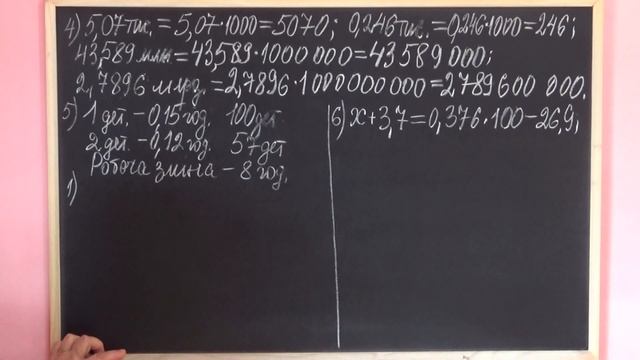 4) 5,07 тис. = 5,07·1000 = 5070; 0,246 тис. = 0,246·1000 = 246;
43,589 млн = 43,589·1000 000 = 43 589 000;
2,7896 млрд. = 2,7896·1000 000 000 = 2789 600 000.
5) 1 дет. – 0,15 год. 100 дет.
2 дет. – 0,12 год. 57 дет
Робоча зміна – 8 год.
1)
6) x + 3,7 = 0,376·100 – 26,9;